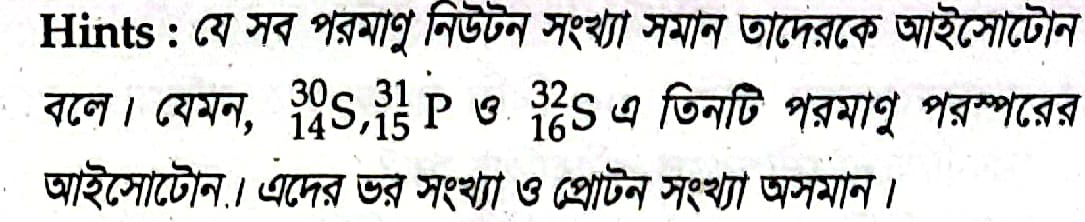 Hints : যে সব পরমাণু নিউটন সংখ্যা সমান তাদেরকে আইসোটোন
বলে। যেমন, ³⁰₁₄S, ³¹₁₅P ও ³²₁₆S এ তিনটি পরমাণু পরস্পরের
আইসোটোন। এদের ভর সংখ্যা ও প্রোটন সংখ্যা অসমান।